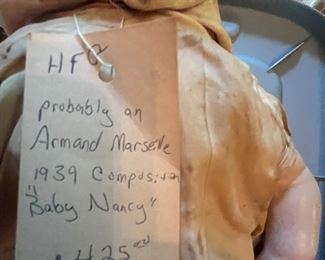 HFQ
probably an
Armand Marseille
1939 Composition
"Baby Nancy"
$ 425 00